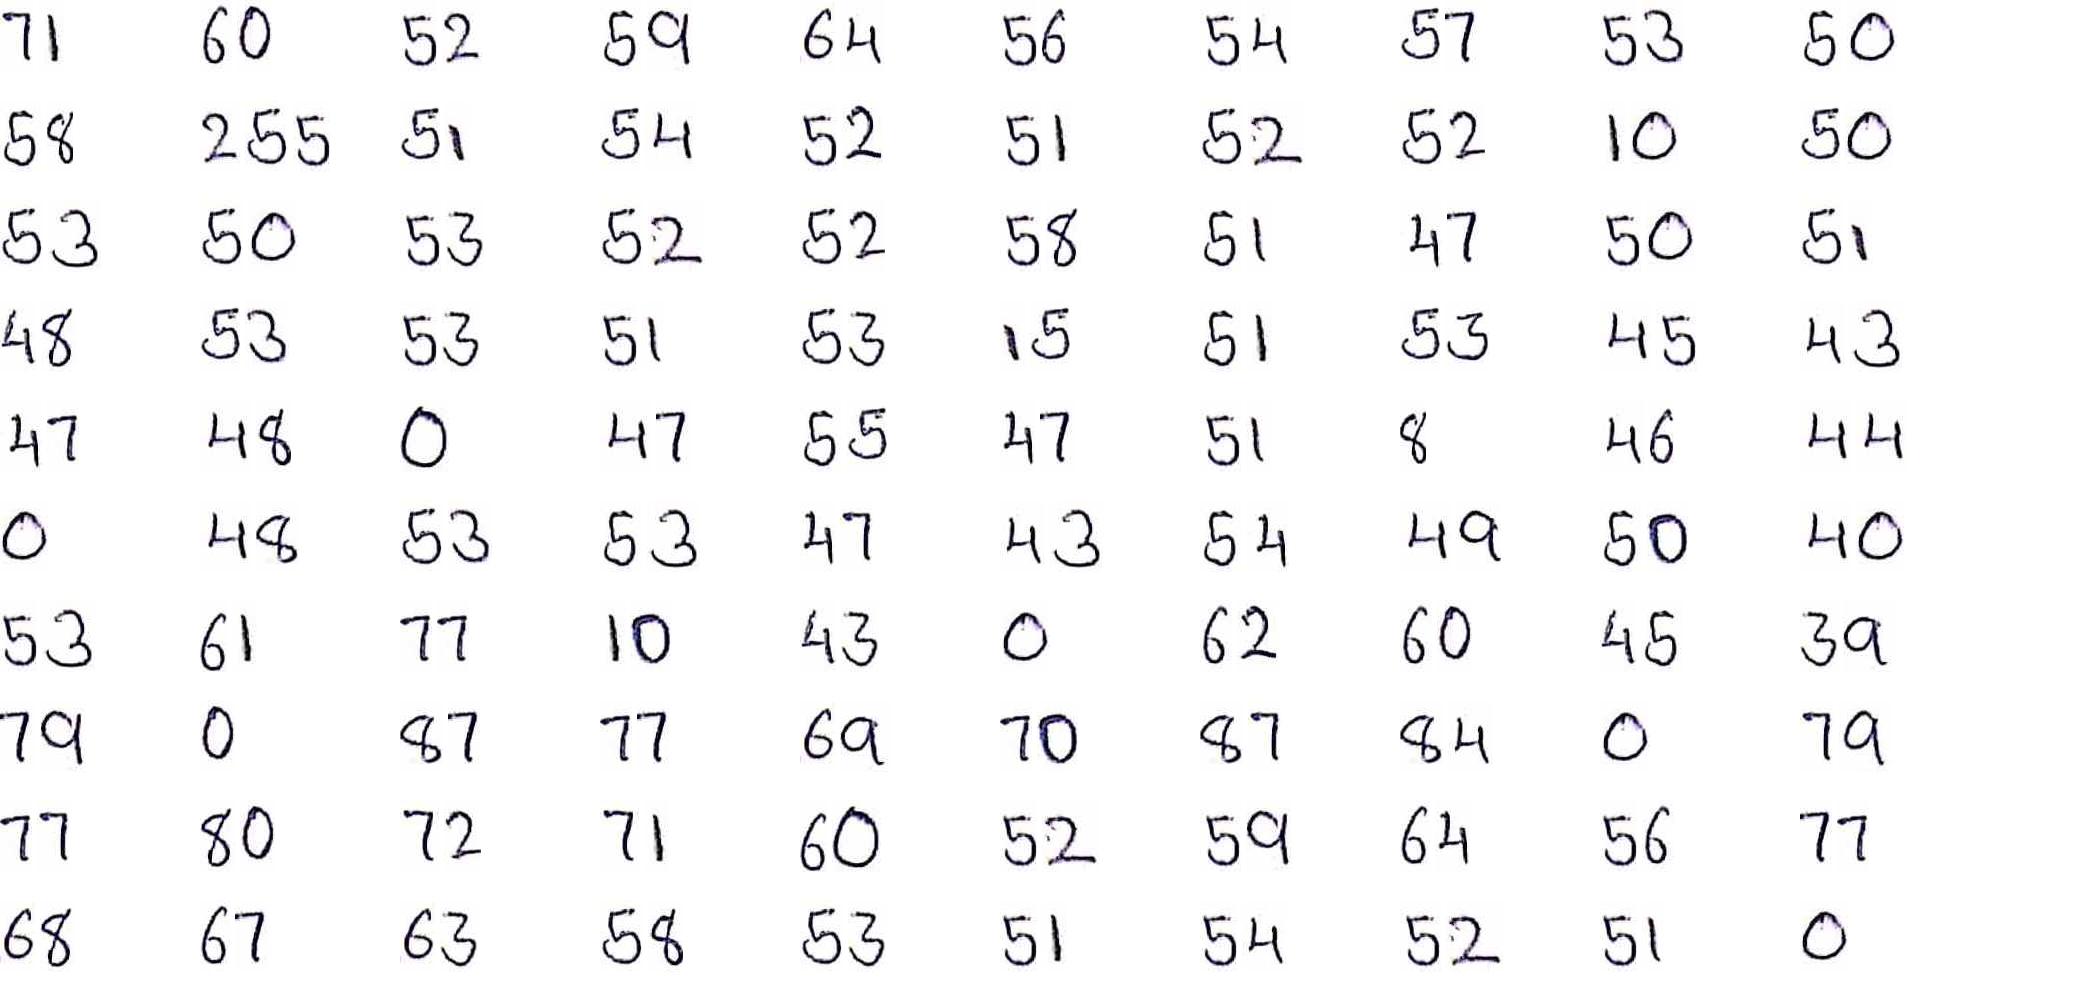 71 60 52 59 64 56 54 57 53 50
58 255 51 54 52 51 52 52 10 50
53 50 53 52 52 58 51 47 50 51
48 53 53 51 53 15 51 53 45 43
47 48 0 47 55 47 51 8 46 44
0 48 53 53 47 43 54 49 50 40
53 61 77 10 43 0 62 60 45 39
79 0 87 77 69 70 87 84 0 79
77 80 72 71 60 52 59 64 56 77
68 67 63 58 53 51 54 52 51 0